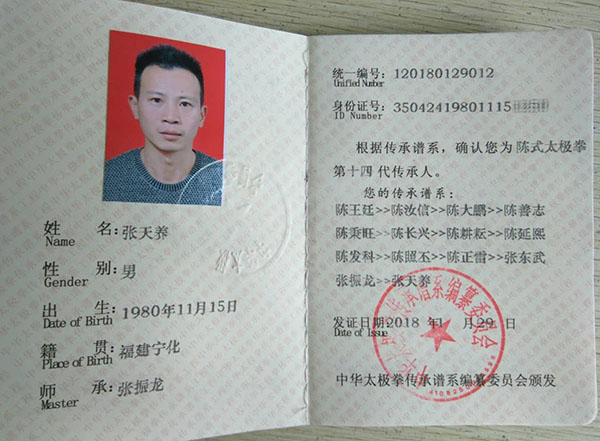 姓 名:张天养
Name
性 别:男
Gender
出 生:1980年11月15日
Date of Birth
籍 贯:福建宁化
Place of Birth
师 承:张振龙
Master
统一编号:120180129012
Unified Number
身份证号:35042419801115
ID Number
根据传承谱系,确认您为陈式太极拳
第十四代传承人。
您的传承谱系:
陈王廷>>陈汝信>>陈大鹏>>陈善志
陈秉旺>>陈长兴>>陈耕耘>>陈延熙
陈发科>>陈照丕>>陈正雷>>张东武
张振龙>>张天养
发证日期2018年1月29日
Date of Issue
传承谱系编纂委员会
中华太极拳传承谱系编纂委员会颁发